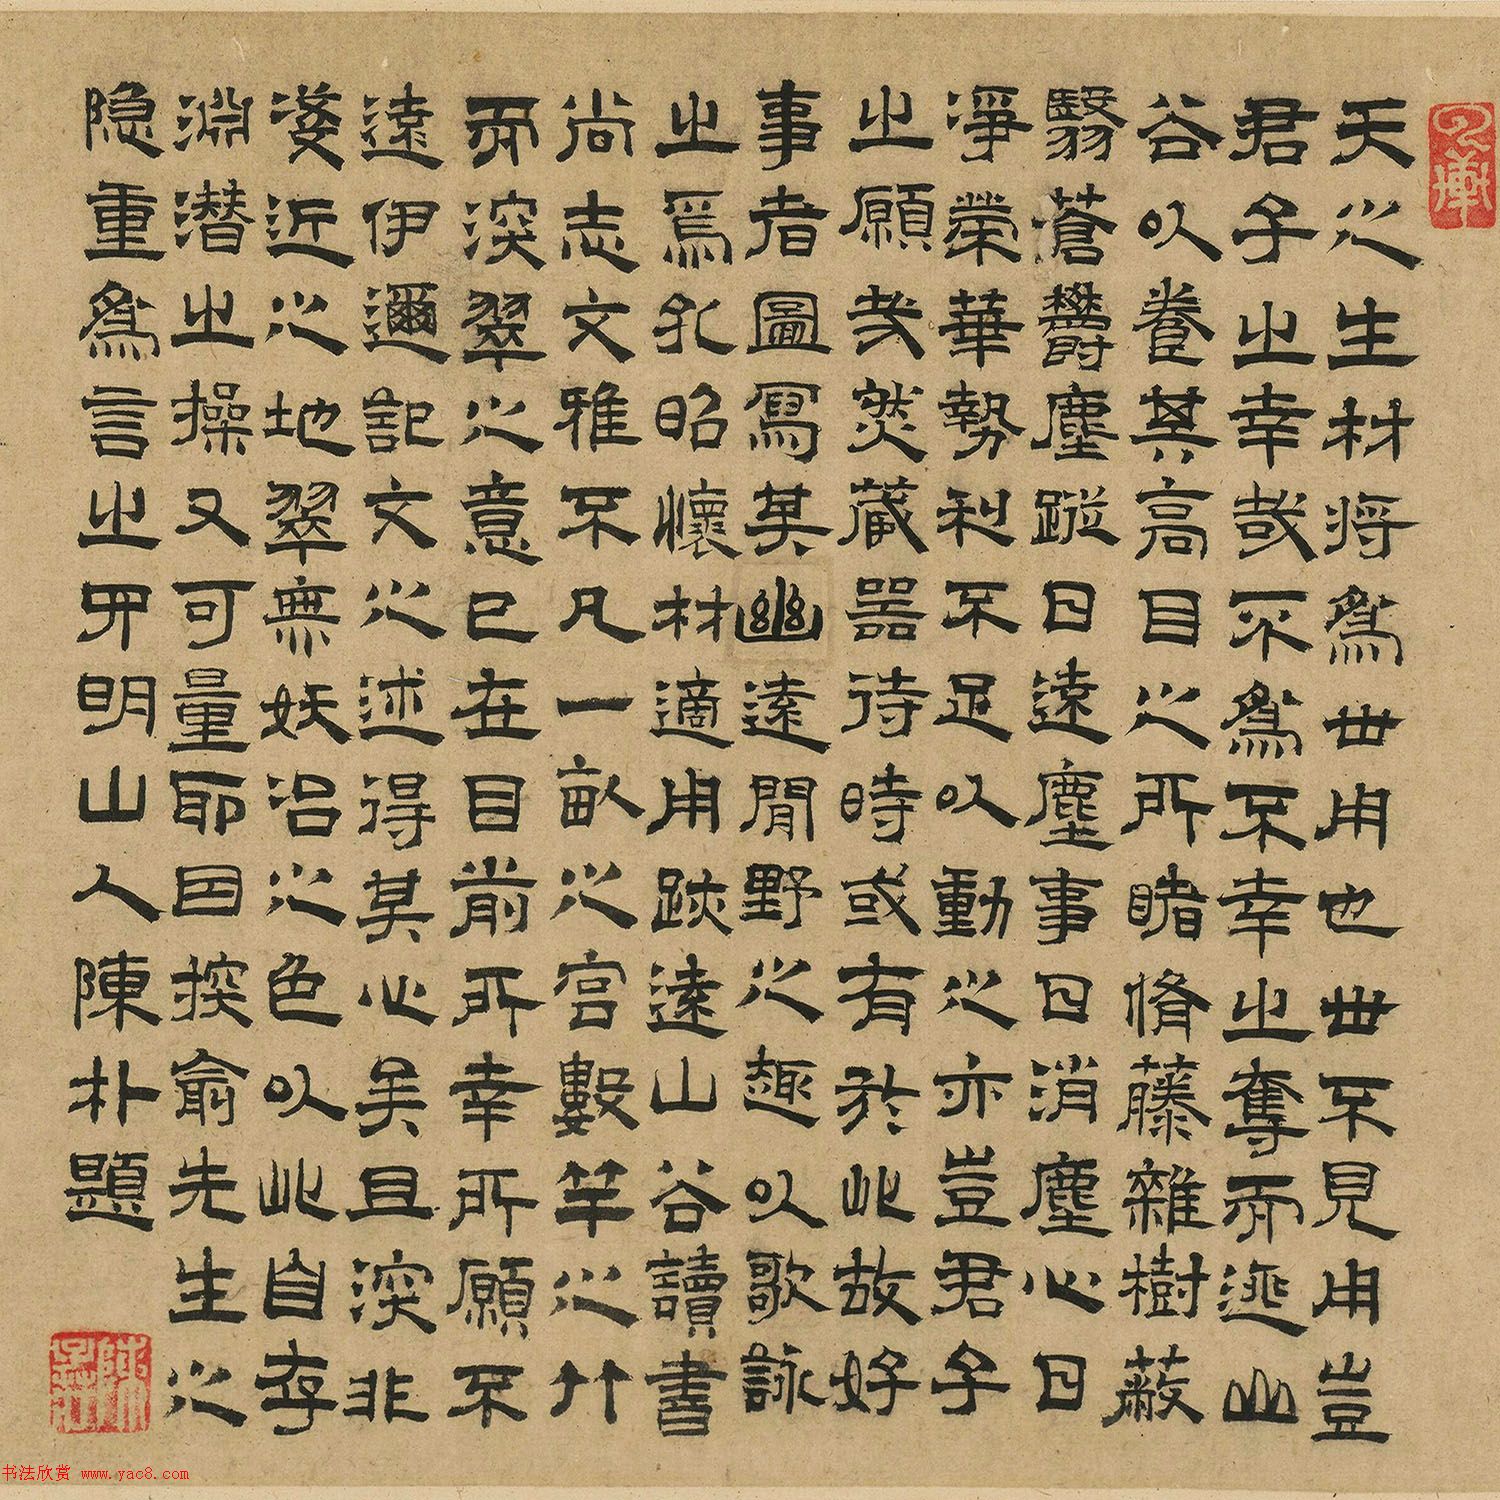 天之生材将為世用也世不見用豈
君子之幸哉不為不幸之奪而逃山
谷以養其高目之所睹脩藤雜樹蔽
翳蒼欝塵蹤日遠塵事日消塵心日
淨榮華勢利不足以動之亦豈君子
之願哉然蔵器待時或有於此故好
事者圖寫其幽遠閒野之趣以歌詠
之焉孔昭懷材適用跡遠山谷讀書
尚志文雅不凡一畝之宮數竿之竹
而深翠之意已在目前所幸所願不
遠伊邇記文之述得其心矣且深非
淺近之地翠無妖冶之色以此自存
淵潜之操又可量耶因挨俞先生之
隐重為言之四明山人陳朴題
书法欣赏 www.yac8.com